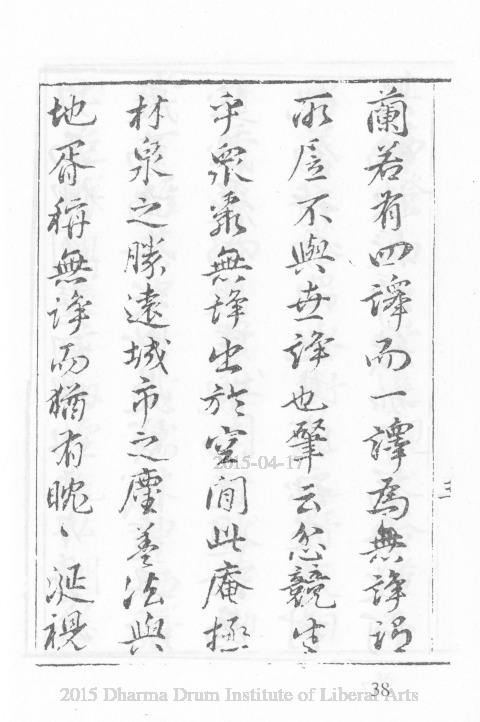 蘭若有四譯而一譯為無諍謂
所居不與世諍也肇云忿競生
乎眾聚無諍出於空閒此庵極
林泉之勝遠城市之塵蓋法與
地胥稱無諍而猶有眈、涎視
三
38
2015-04-17
2015 Dharma Drum Institute of Liberal Arts